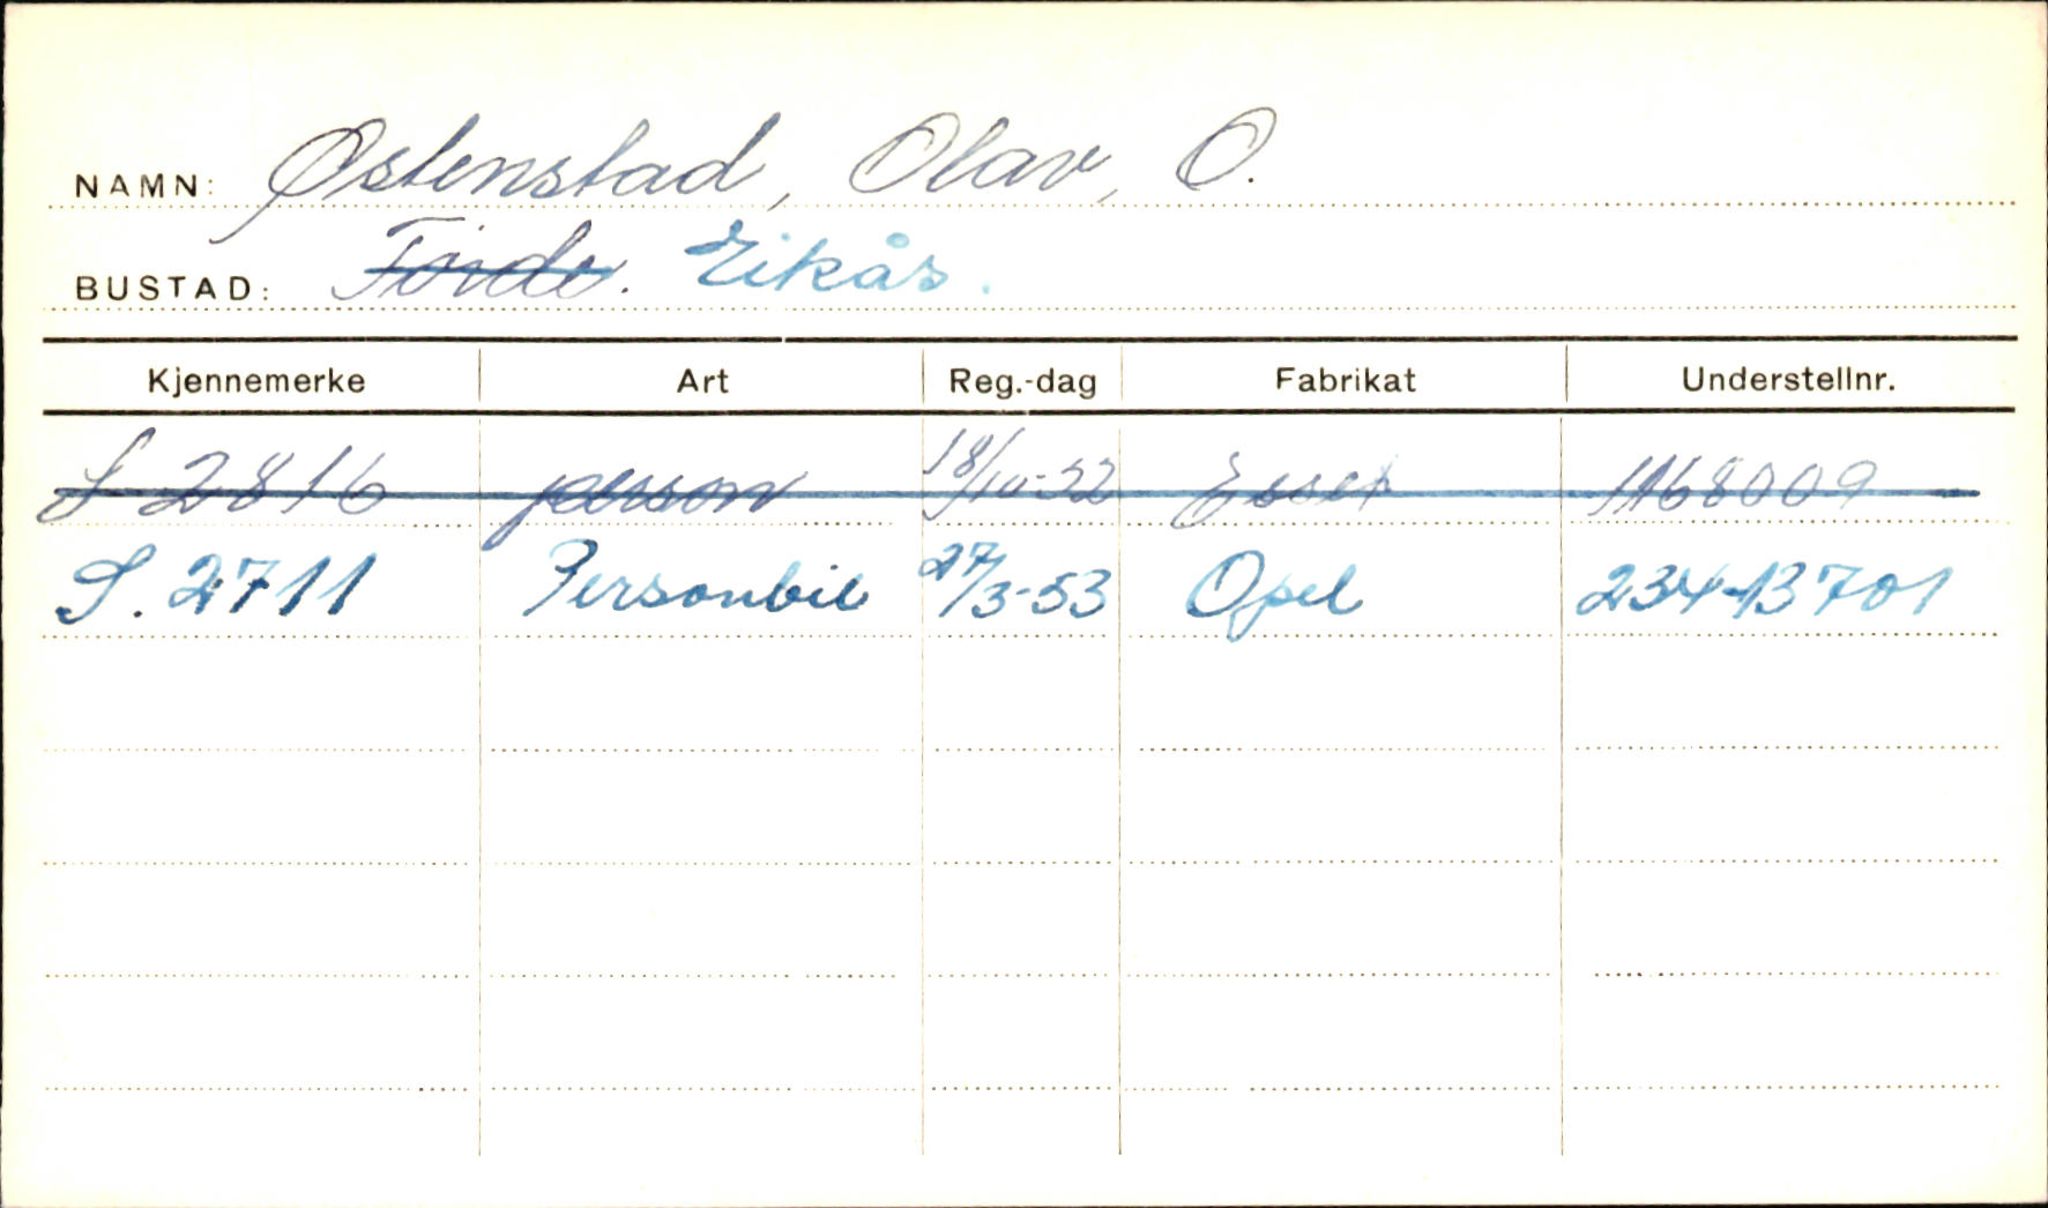 NAMN: Østenstad, Olav, O.
BUSTAD: Førde. Eikås.
Kjennemerke Art Reg.-dag Fabrikat Understellnr.
S 2816 person 18/10-52 Essex 1168009
S. 2711 Personbil 27/3-53 Opel 234-13701